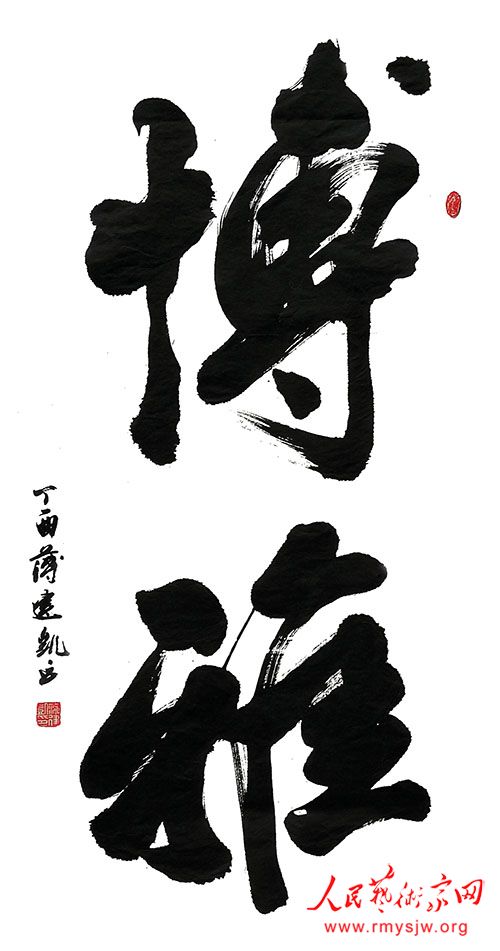 博雅
丁酉薄建凱书
人民藝術家网
www.rmysjw.org